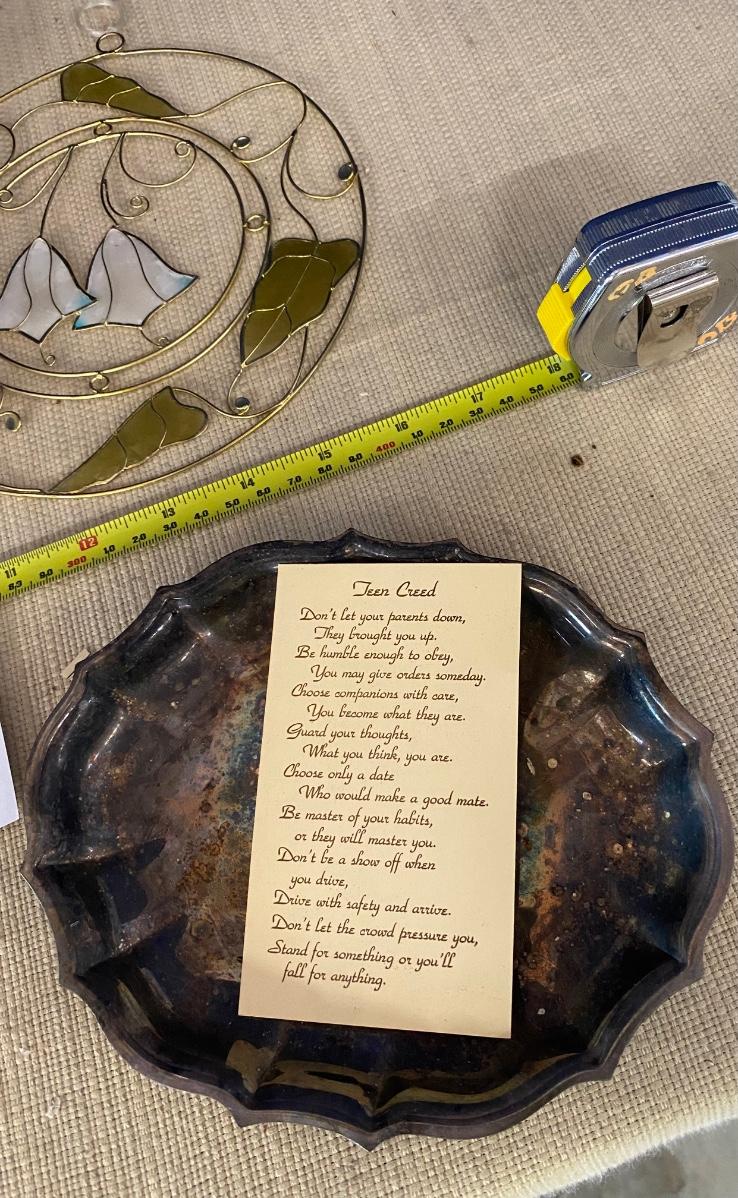 18
17
16
15
14
13
12
11
6.0
5.0
4.0
3.0
2.0
1.0
400
9.0
8.0
7.0
6.0
5.0
4.0
3.0
2.0
1.0
300
9.0
Teen Creed
Don't let your parents down,
They brought you up.
Be humble enough to obey,
You may give orders someday.
Choose companions with care,
You become what they are.
Guard your thoughts,
What you think, you are.
Choose only a date
Who would make a good mate.
Be master of your habits,
or they will master you.
Don't be a show off when
you drive,
Drive with safety and arrive.
Don't let the crowd pressure you,
Stand for something or you'll
fall for anything.